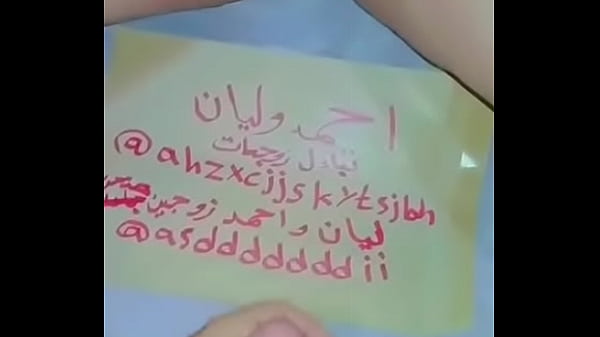 احمد وليان
تبادل زوجات
@ahzxcjjskytsjbh
ليان و احمد زوجين
@asdddddddii